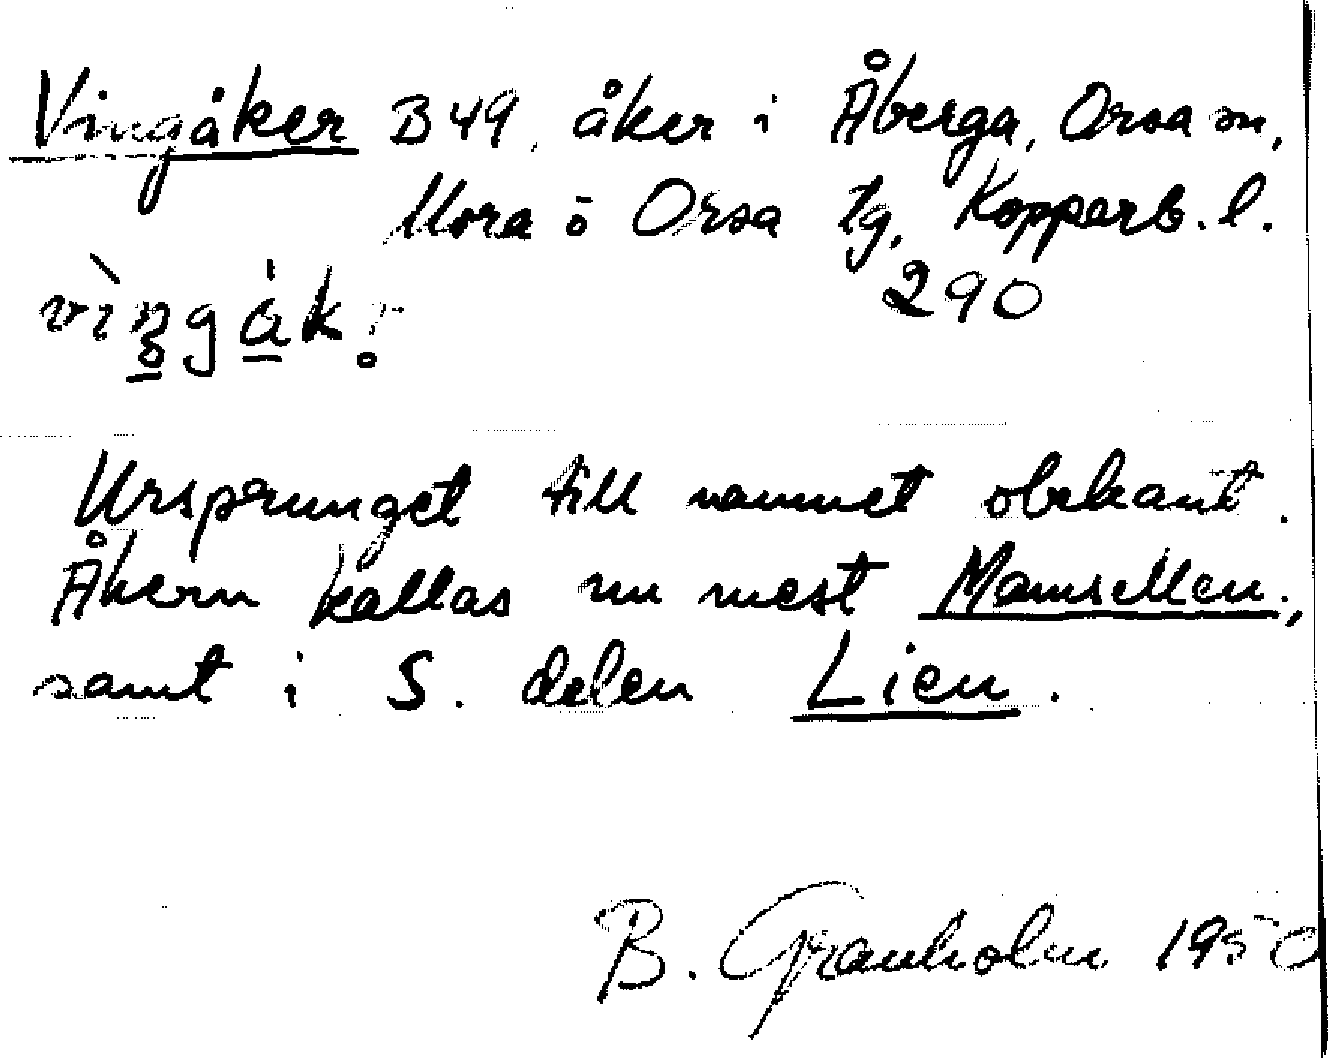 Vingåker B 49, åker i Åberga, Orsa sn,
Mora o Orsa tg, Kopparb. l.
290
Ursprunget till namnet obekant.
Åkern kallas nu mest Mamsellen,
samt i S. delen Lien.
B. Granholm 1950